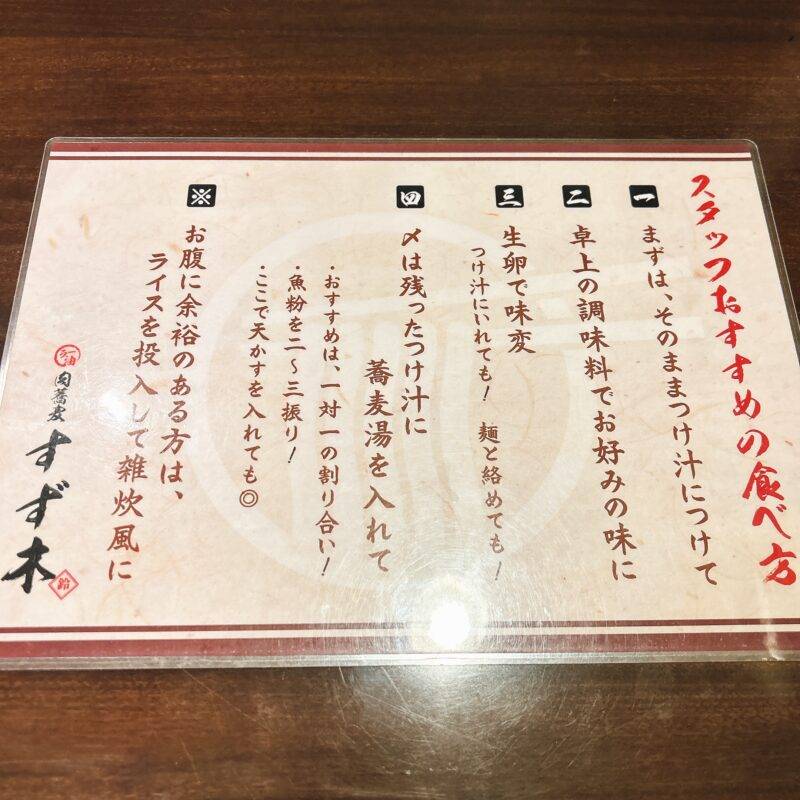 スタッフおすすめの食べ方
一
まずは、そのままつけ汁につけて
二
卓上の調味料でお好みの味に
三
生卵で味変
つけ汁にいれても! 麺と絡めても!
四
〆は残ったつけ汁に
蕎麦湯を入れて
・おすすめは、一対一の割り合い!
・魚粉を二〜三振り!
・ここで天かすを入れても◎
※
お腹に余裕のある方は、
ライスを投入して雑炊風に
肉蕎麦
すず木
鈴